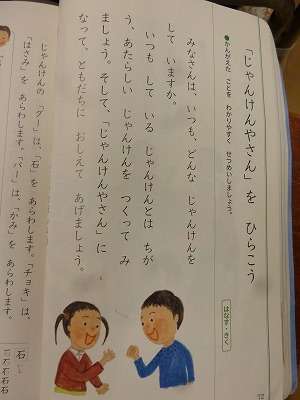 「じゃんけんやさん」を ひらこう
●かんがえた ことを わかりやすく せつめいしましょう。
はなす・きく
みなさんは、いつも、どんな じゃんけんを
して いますか。
いつも して いる じゃんけんとは ちが
う、あたらしい じゃんけんを つくって み
ましょう。そして、「じゃんけんやさん」に
なって、ともだちに おしえて あげましょう。
じゃんけんの 「グー」は、「石」を あらわします。「チョキ」は、
「はさみ」を あらわします。「パー」は、「かみ」を あらわします。
石